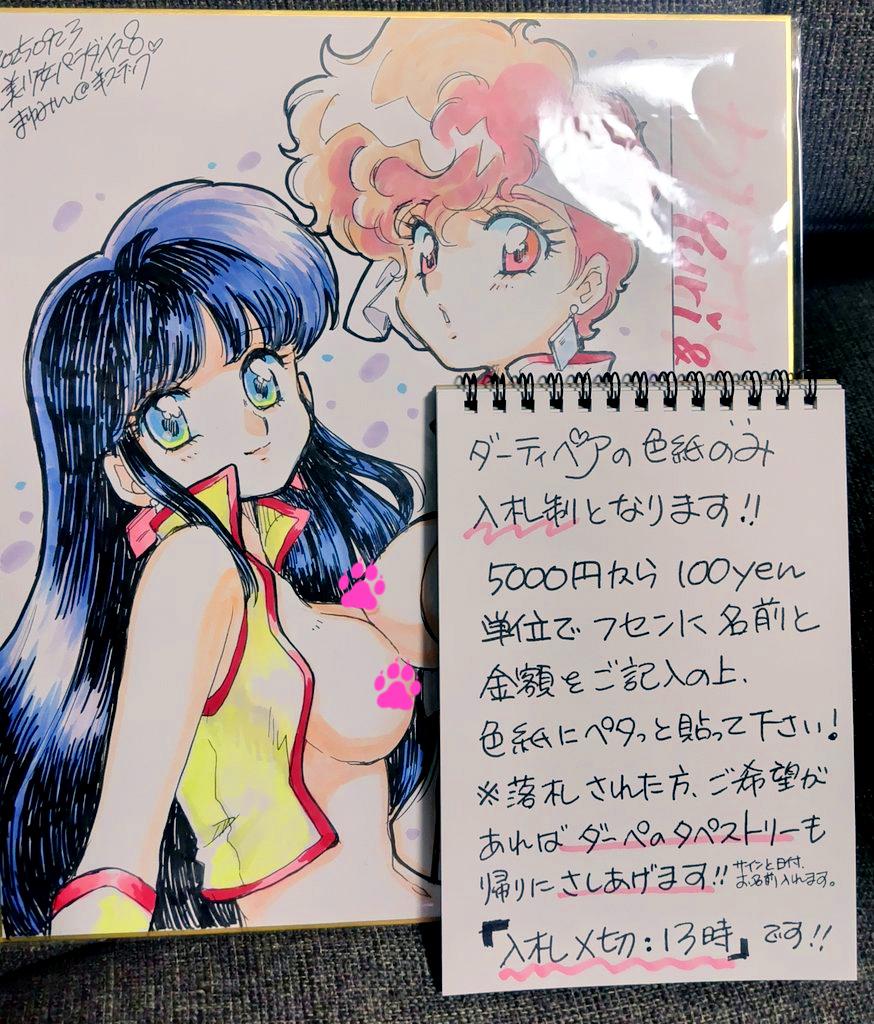 20250923
美少女パラダイス8♡
まゆみん@羊ステーワ
Yuri &
ダーティペアの色紙のみ
入札制となります!!
5000円から 100yen
単位で フセンに 名前と
金額をご記入の上、
色紙にペタっと貼って下さい!
※落札された方、ご希望が
あれば ダーペのタペストリーも
帰りに さしあげます!!
サインと日付、
お名前入れます。
『入札〆切:13時』です!!